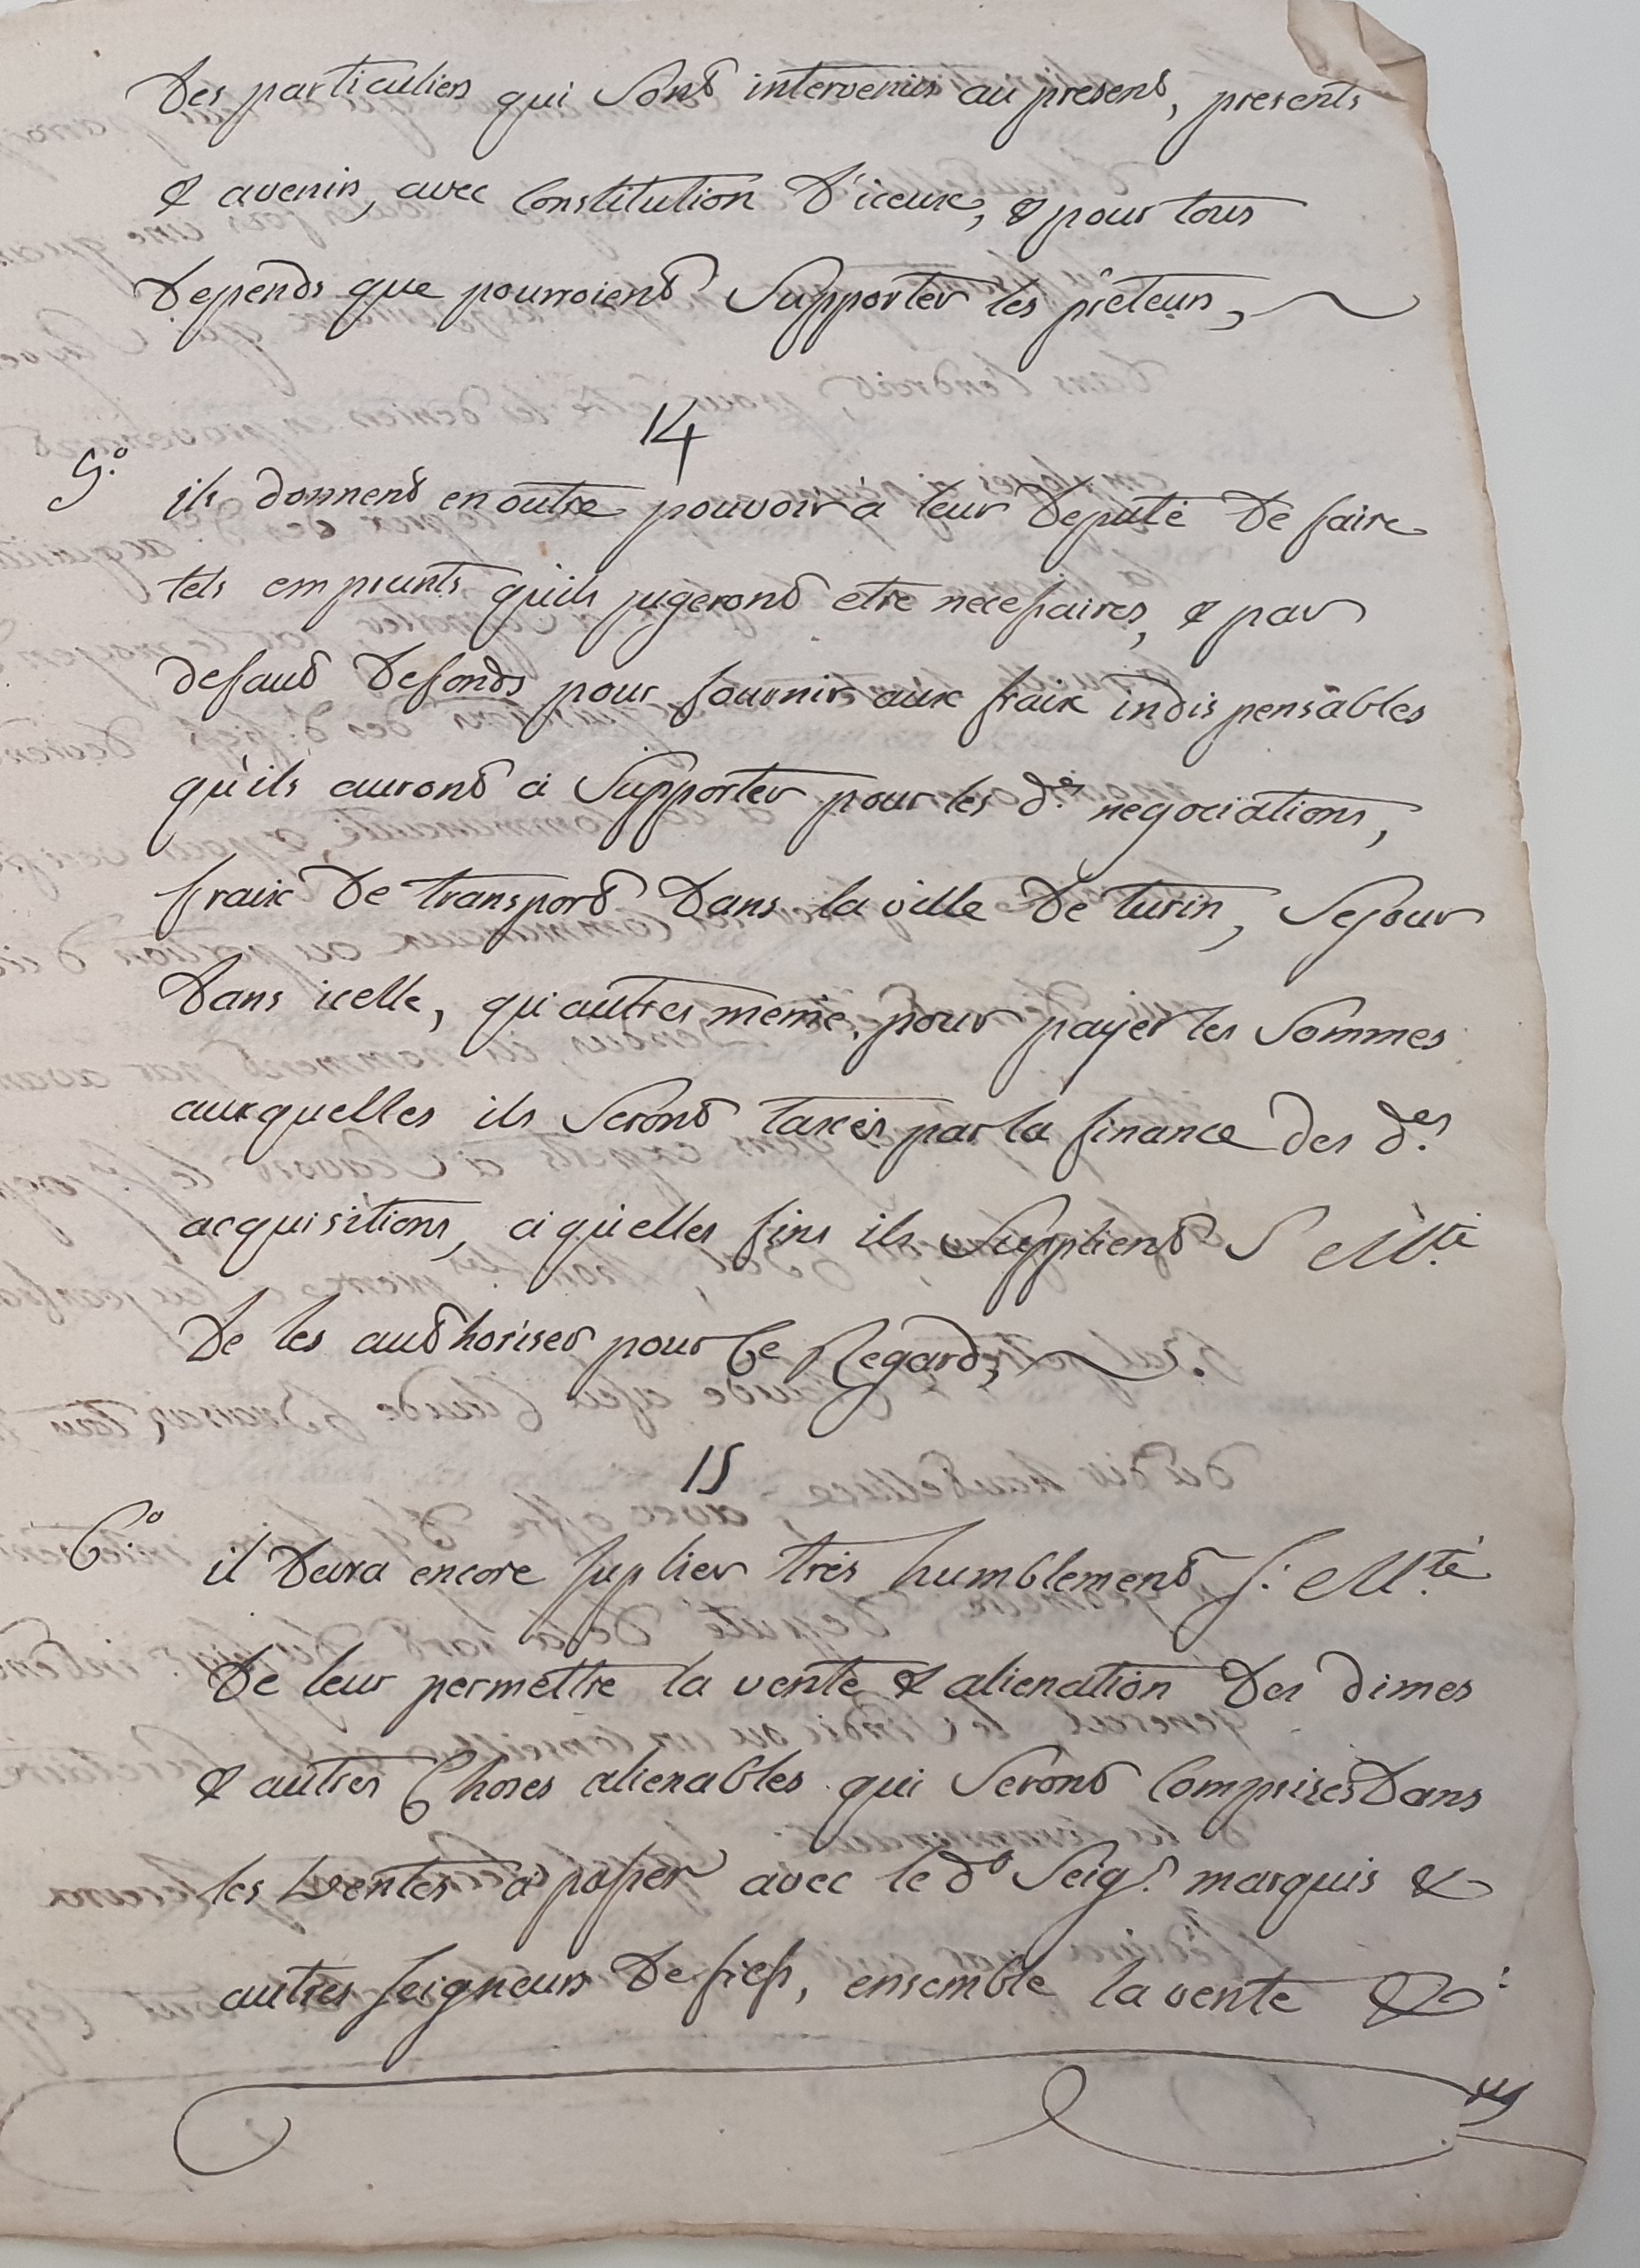 Des particuliers qui Sont intervenus au present, presents
& avenir, avec Constitution D'iceux, & pour tous
Depends que pourroient Supporter les prêteurs,
14
5.° ils donnent en outre pouvoir à leur Deputé De faire
tels emprunts qu'ils jugeront etre necessaires, & par
defaut De fonds pour fournir aux fraix indispensables
qu'ils auront à Supporter pour les d.es negociations,
fraix De transport Dans la ville De turin, Sejour
Dans icelle, qu'autres meme, pour payer les Sommes
auxquelles ils Seront taxés par la finance des d.es
acquisitions, à quelles fins ils Supplient S M.té
De les authoriser pour Ce Regard,
15
6.° il Devra encore suplier très humblement S. M.té
De leur permettre la vente & alienation Des dimes
& autres Choses alienables qui Seront Comprises Dans
les Ventes à passer avec le d.° Seig.r marquis &
autres seigneurs De fiefs, ensemble la vente &: